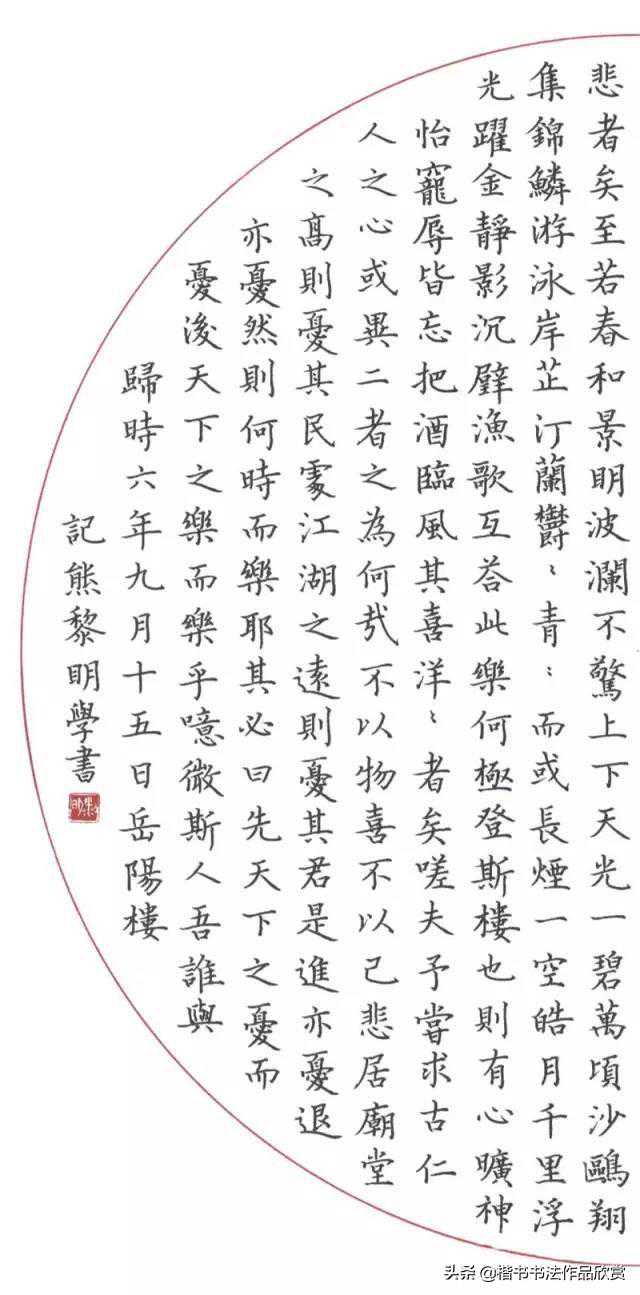 悲者矣至若春和景明波瀾不驚上下天光一碧萬頃沙鷗翔
集錦鱗游泳岸芷汀蘭欝〻青〻而或長煙一空皓月千里浮
光躍金靜影沉璧漁歌互荅此樂何極登斯樓也則有心曠神
怡寵辱皆忘把酒臨風其喜洋〻者矣嗟夫予嘗求古仁
人之心或異二者之為何㢤不以物喜不以己悲居廟堂
之髙則憂其民䖏江湖之遠則憂其君是進亦憂退
亦憂然則何時而樂耶其必曰先天下之憂而
憂後天下之樂而樂乎噫微斯人吾誰與
歸時六年九月十五日岳陽樓
記熊黎明學書
头条 @楷书书法作品欣赏